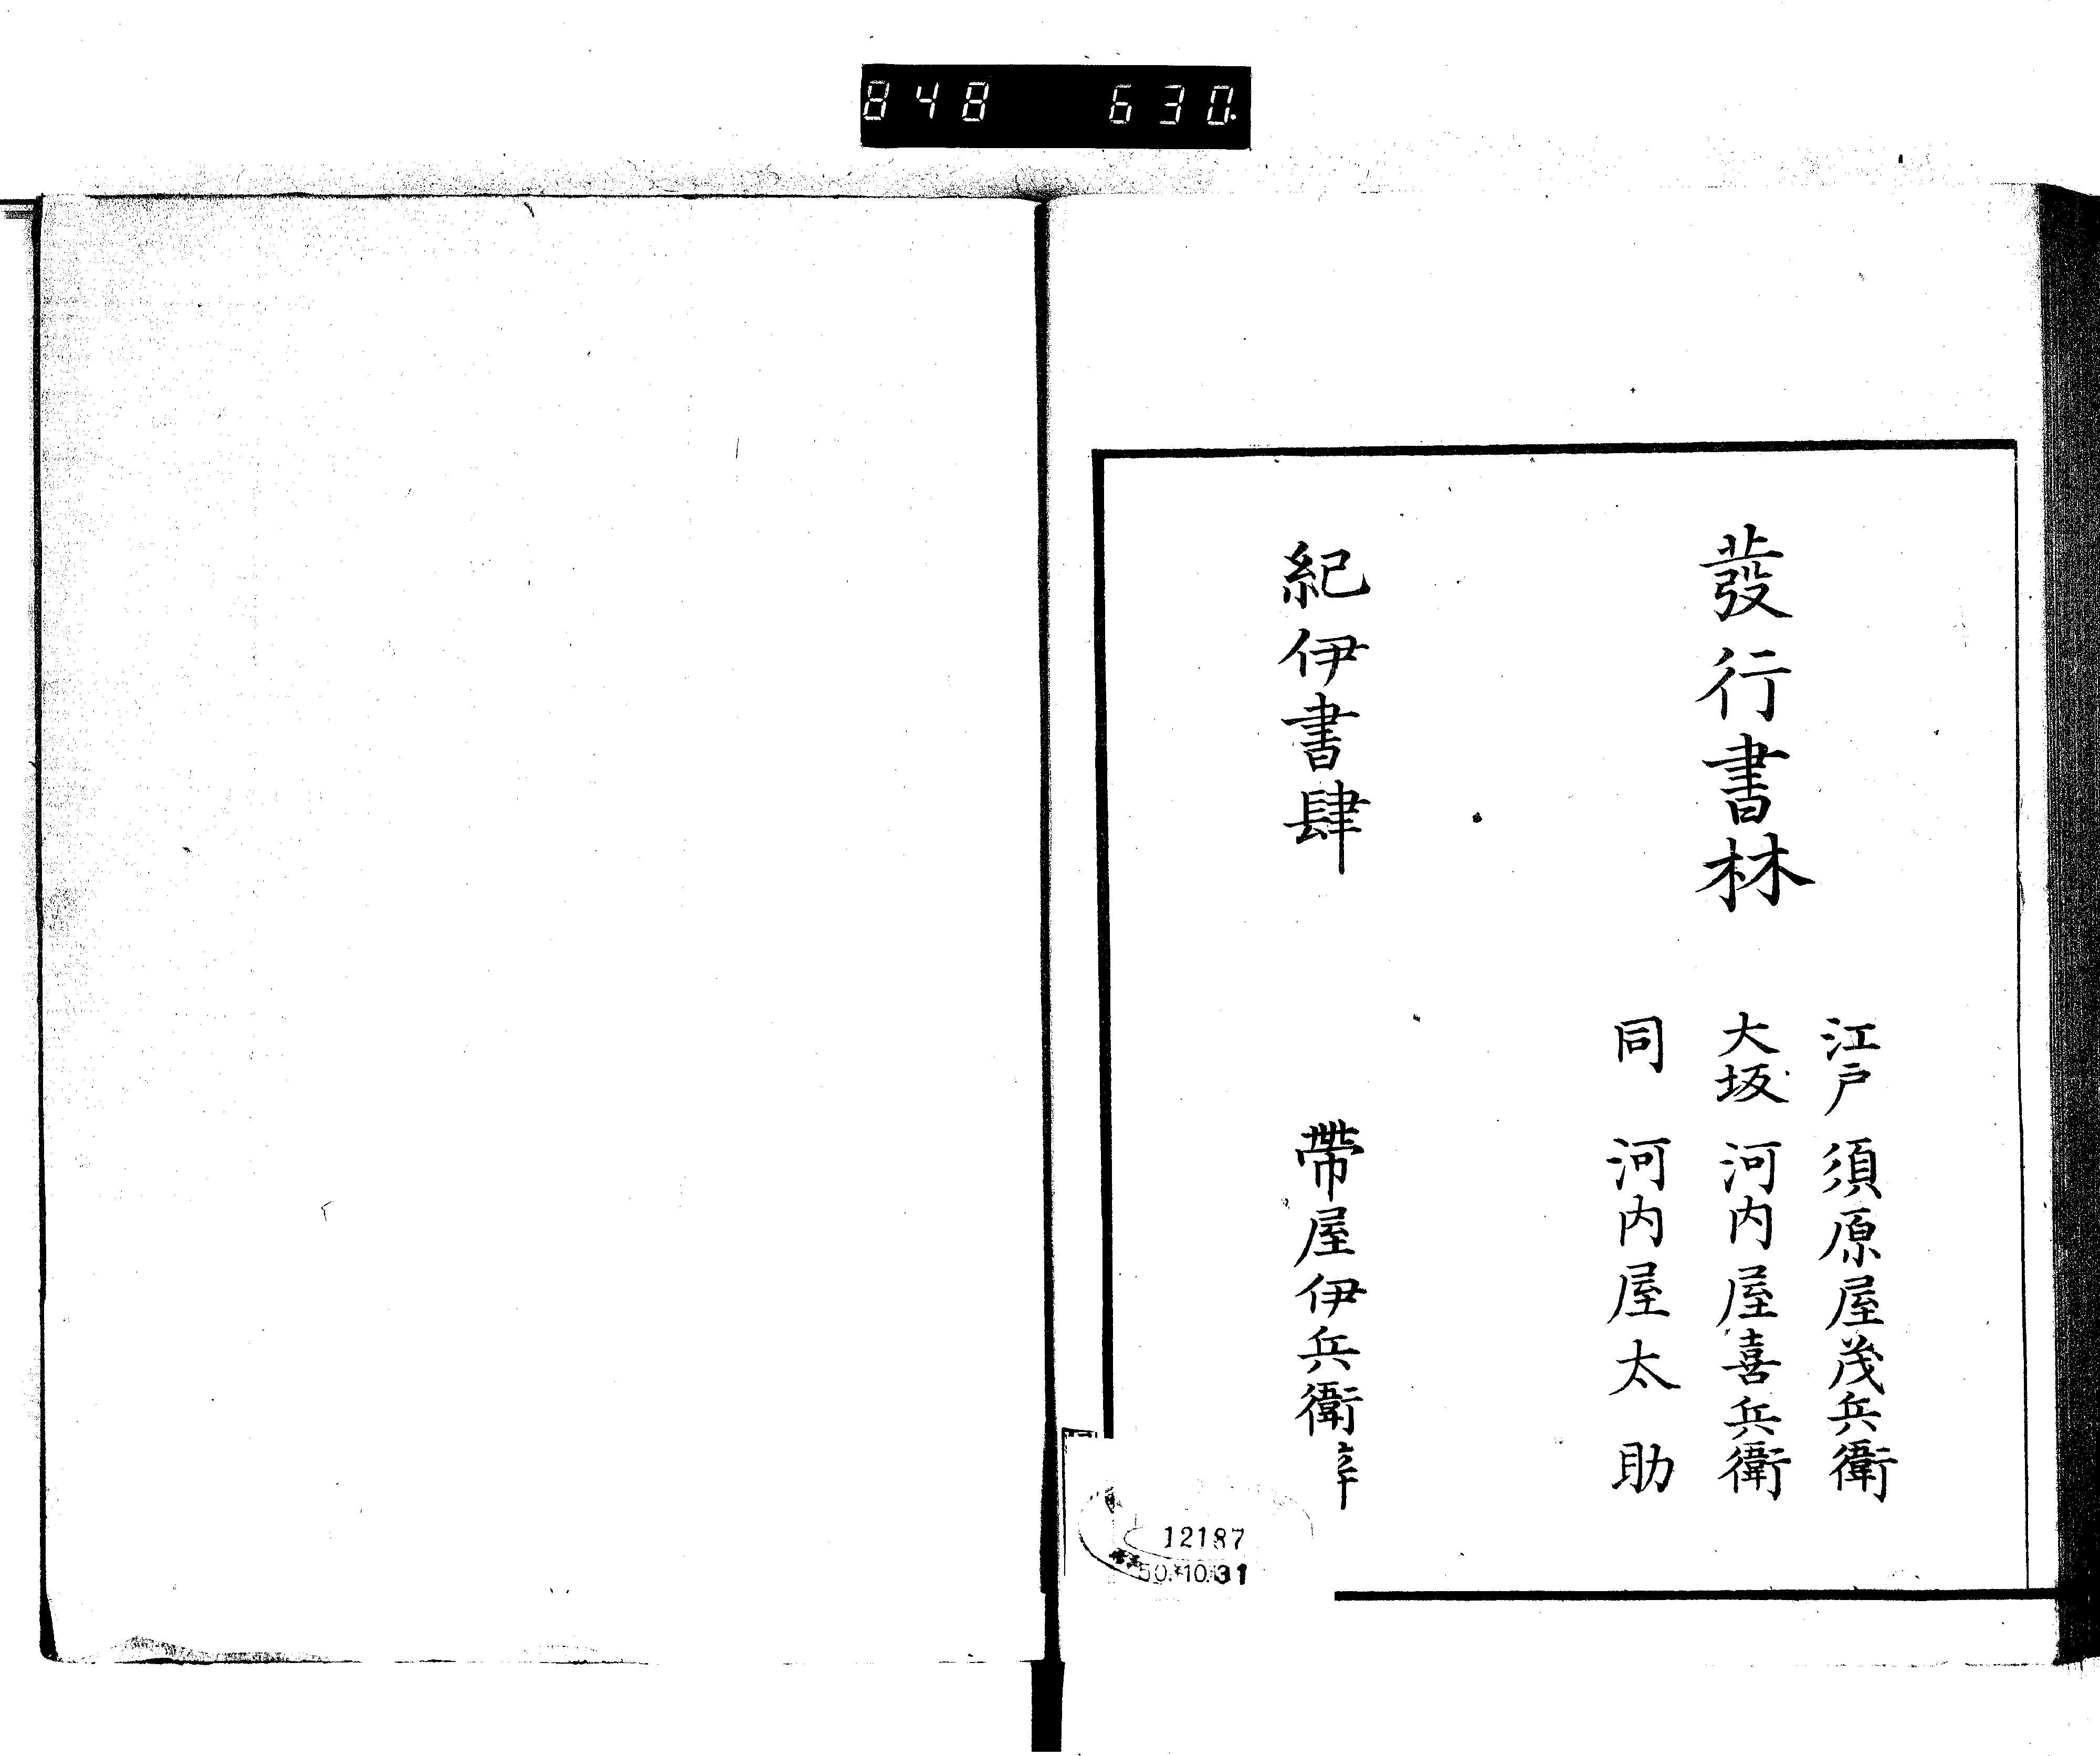 848 630
發行書林
江戸 須原屋茂兵衛
大坂 河内屋喜兵衛
同 河内屋太助
紀伊書肆 帶屋伊兵衛
12187
50.10.31